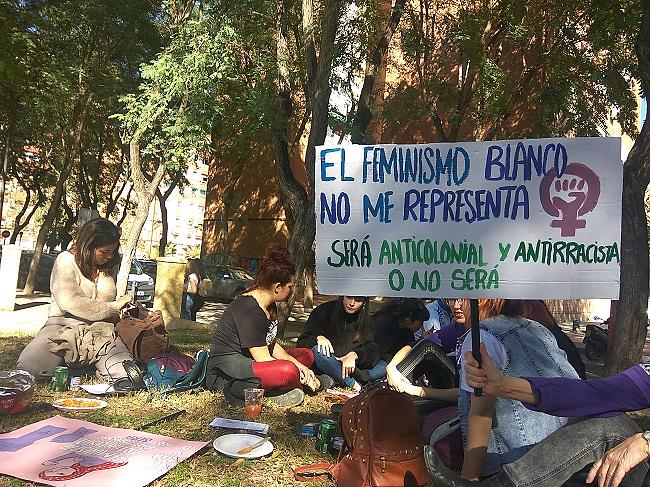 EL FEMINISMO BLANCO
NO ME REPRESENTA
SERÁ ANTICOLONIAL Y ANTIRRACISTA
O NO SERÁ